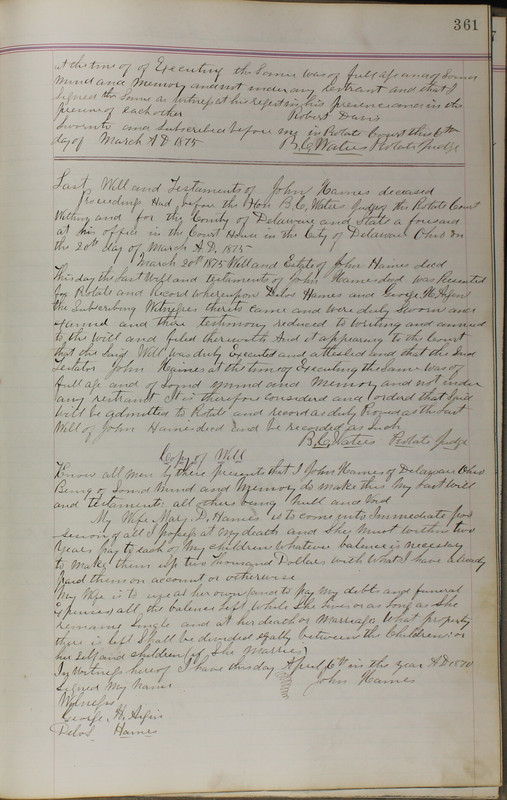 361
at the time of of Executing the Same was of full age and of Sound
mind and Memory and not under any restraint and that I
Signed the Same as witness at his request in his presence and in the
presence of each other Robert Davis
Sworn to and Subscribed before me in Probate Court this 6th
day of March A.D. 1875 B.C. Waters Probate Judge
Last Will and Testaments of John Hames deceased
Proceedings Had before the Hon B.C. Waters Judge of the Probate Court
Withing and for the County of Delaware and State a foresaid
at his office in the Court House in the City of Delaware Ohio on
the 20th day of March A.D. 1875
March 20th 1875 Will and Estate of John Haines decd
This day the Last Will and testaments of John Hames decd was Presented
for Probate and Record whereupon Delos Hames and George H.
the Subscribing Witnesses thereto came and were duly Sworn and
examined and there testimony reduced to Writing and annexed
to the Will and filed therewith And it appearing to the Court
that the Said Will was duly Executed and attested and that the Said
Testator John Haines at the time of Executing the Same was of
full age and of Sound mind and Memory and not under
any restraint It is therefore Considered and orderd that Said
Will be admitted to Probate and record as duly Proved as the Last
Will of John Hames decd and be recorded as Such
B.C. Waters Probate Judge
Copy of Will
Know all men by these presents that I John Hames of Delaware Ohio
Being of Sound Mind and Memory do make this my Last Will
and testaments all others being Null and Void
My Wife Mary D. Hames is to come into Immediate pos
session of all I possess at my death and She Must within two
Years pay to each of My children whatever balance is necessary
to Make them up two thousand Dollars with What I have already
paid them on account or otherwise
My Wife is to use as her own (and to pay my debts and funeral
Expenses) all the balance left While She lives or as long as She
remains Single and at her death or Marriage What property
there is left Shall be divided eqally between the Children or
her Self and children (if She Marries)
In Witness hereof I have this day April 6th in the year A D 1870
Signed My Name John Hames
Witness
George H.
Delos Hames